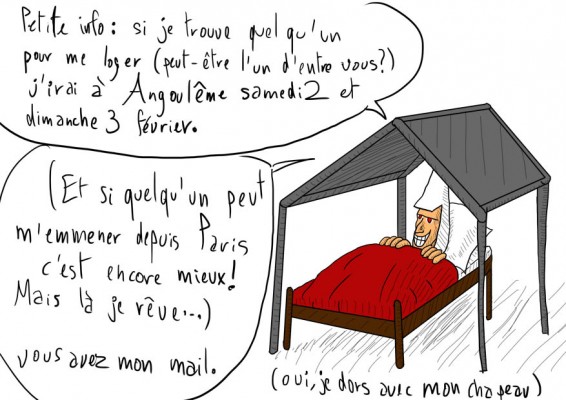 Petite info: si je trouve quelqu'un
pour me loger (peut-être l'un d'entre vous?)
j'irai à Angoulême samedi 2 et
dimanche 3 février.
(Et si quelqu'un peut
m'emmener depuis Paris
c'est encore mieux!
Mais là je rêve...)
vous avez mon mail.
(oui, je dors avec mon chapeau)